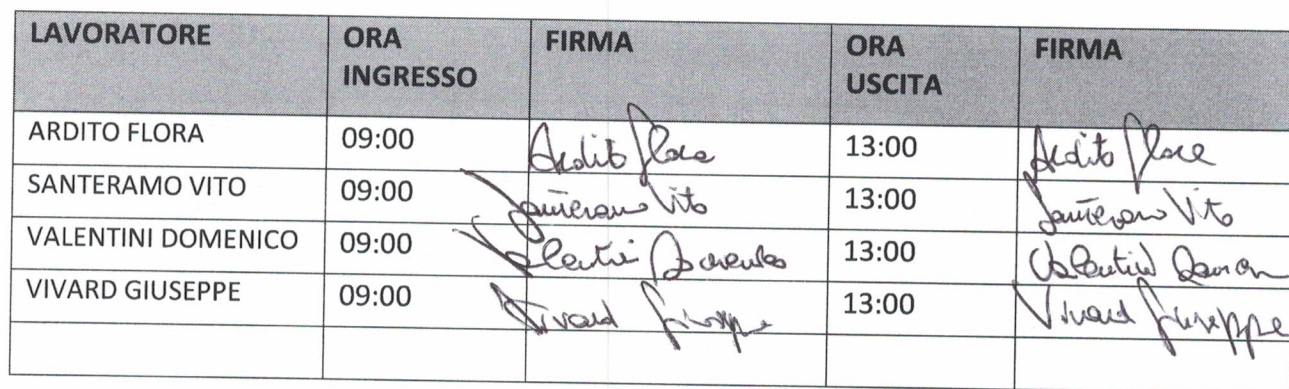 LAVORATORE ORA INGRESSO FIRMA ORA USCITA FIRMA
ARDITO FLORA 09:00 Ardito Flora 13:00 Ardito Flora
SANTERAMO VITO 09:00 Santeramo Vito 13:00 Santeramo Vito
VALENTINI DOMENICO 09:00 Valentini Domenico 13:00 Valentini
VIVARD GIUSEPPE 09:00 Vivard Giuseppe 13:00 Vivard Giuseppe